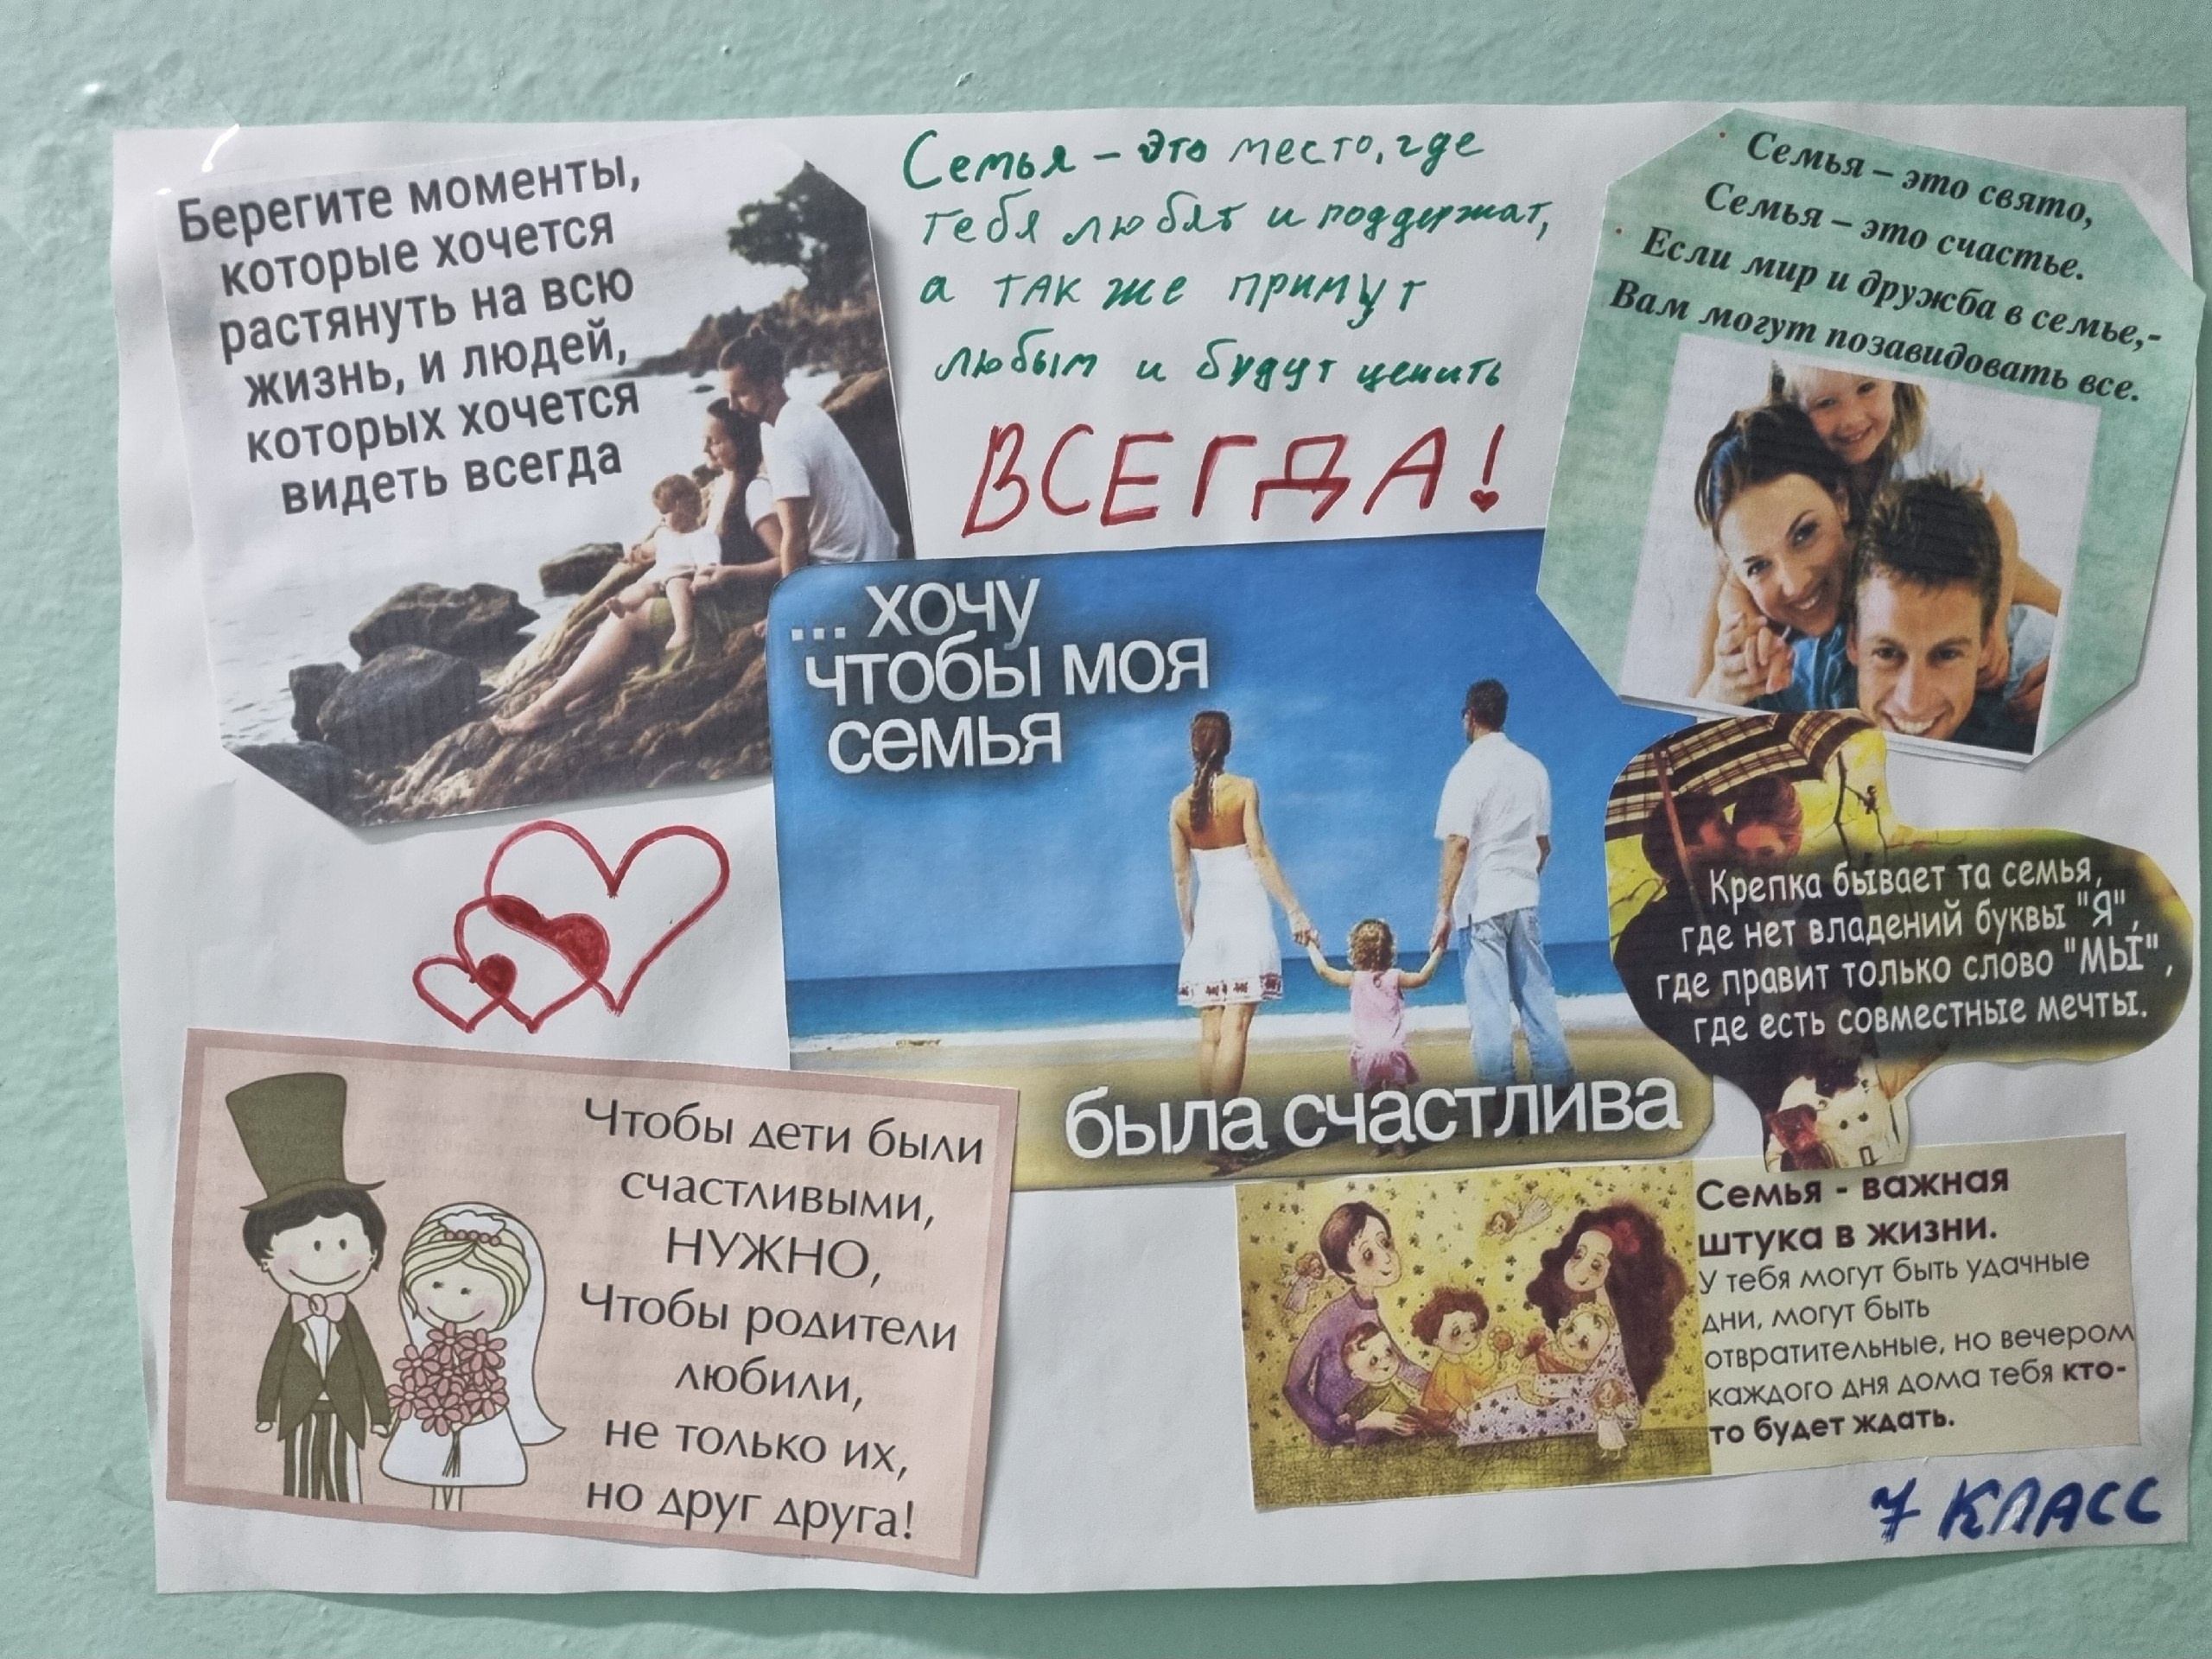 Берегите моменты,
которые хочется
растянуть на всю
жизнь, и людей,
которых хочется
видеть всегда
Семья – это место, где
тебя любят и поддержат,
а так же примут
любым и будут ценить
ВСЕГДА!
Семья – это свято,
Семья – это счастье.
Если мир и дружба в семье,-
Вам могут позавидовать все.
... хочу
чтобы моя
семья
была счастлива
Крепка бывает та семья,
где нет владений буквы "Я",
где правит только слово "МЫ",
где есть совместные мечты.
Чтобы дети были
счастливыми,
НУЖНО,
Чтобы родители
любили,
не только их,
но друг друга!
Семья - важная
штука в жизни.
У тебя могут быть удачные
дни, могут быть
отвратительные, но вечером
каждого дня дома тебя кто-
то будет ждать.
7 КЛАСС